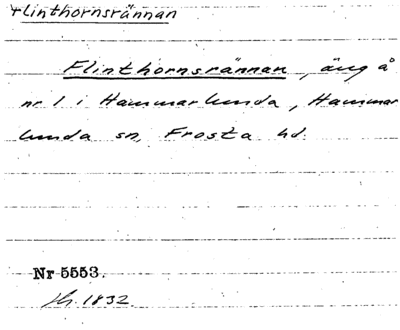 Flinthornsrännan
Flinthornsrännan, äng å
nr 1 i Hammarlunda, Hammar
lunda sn, Frosta hd.
Nr 5553.
1832